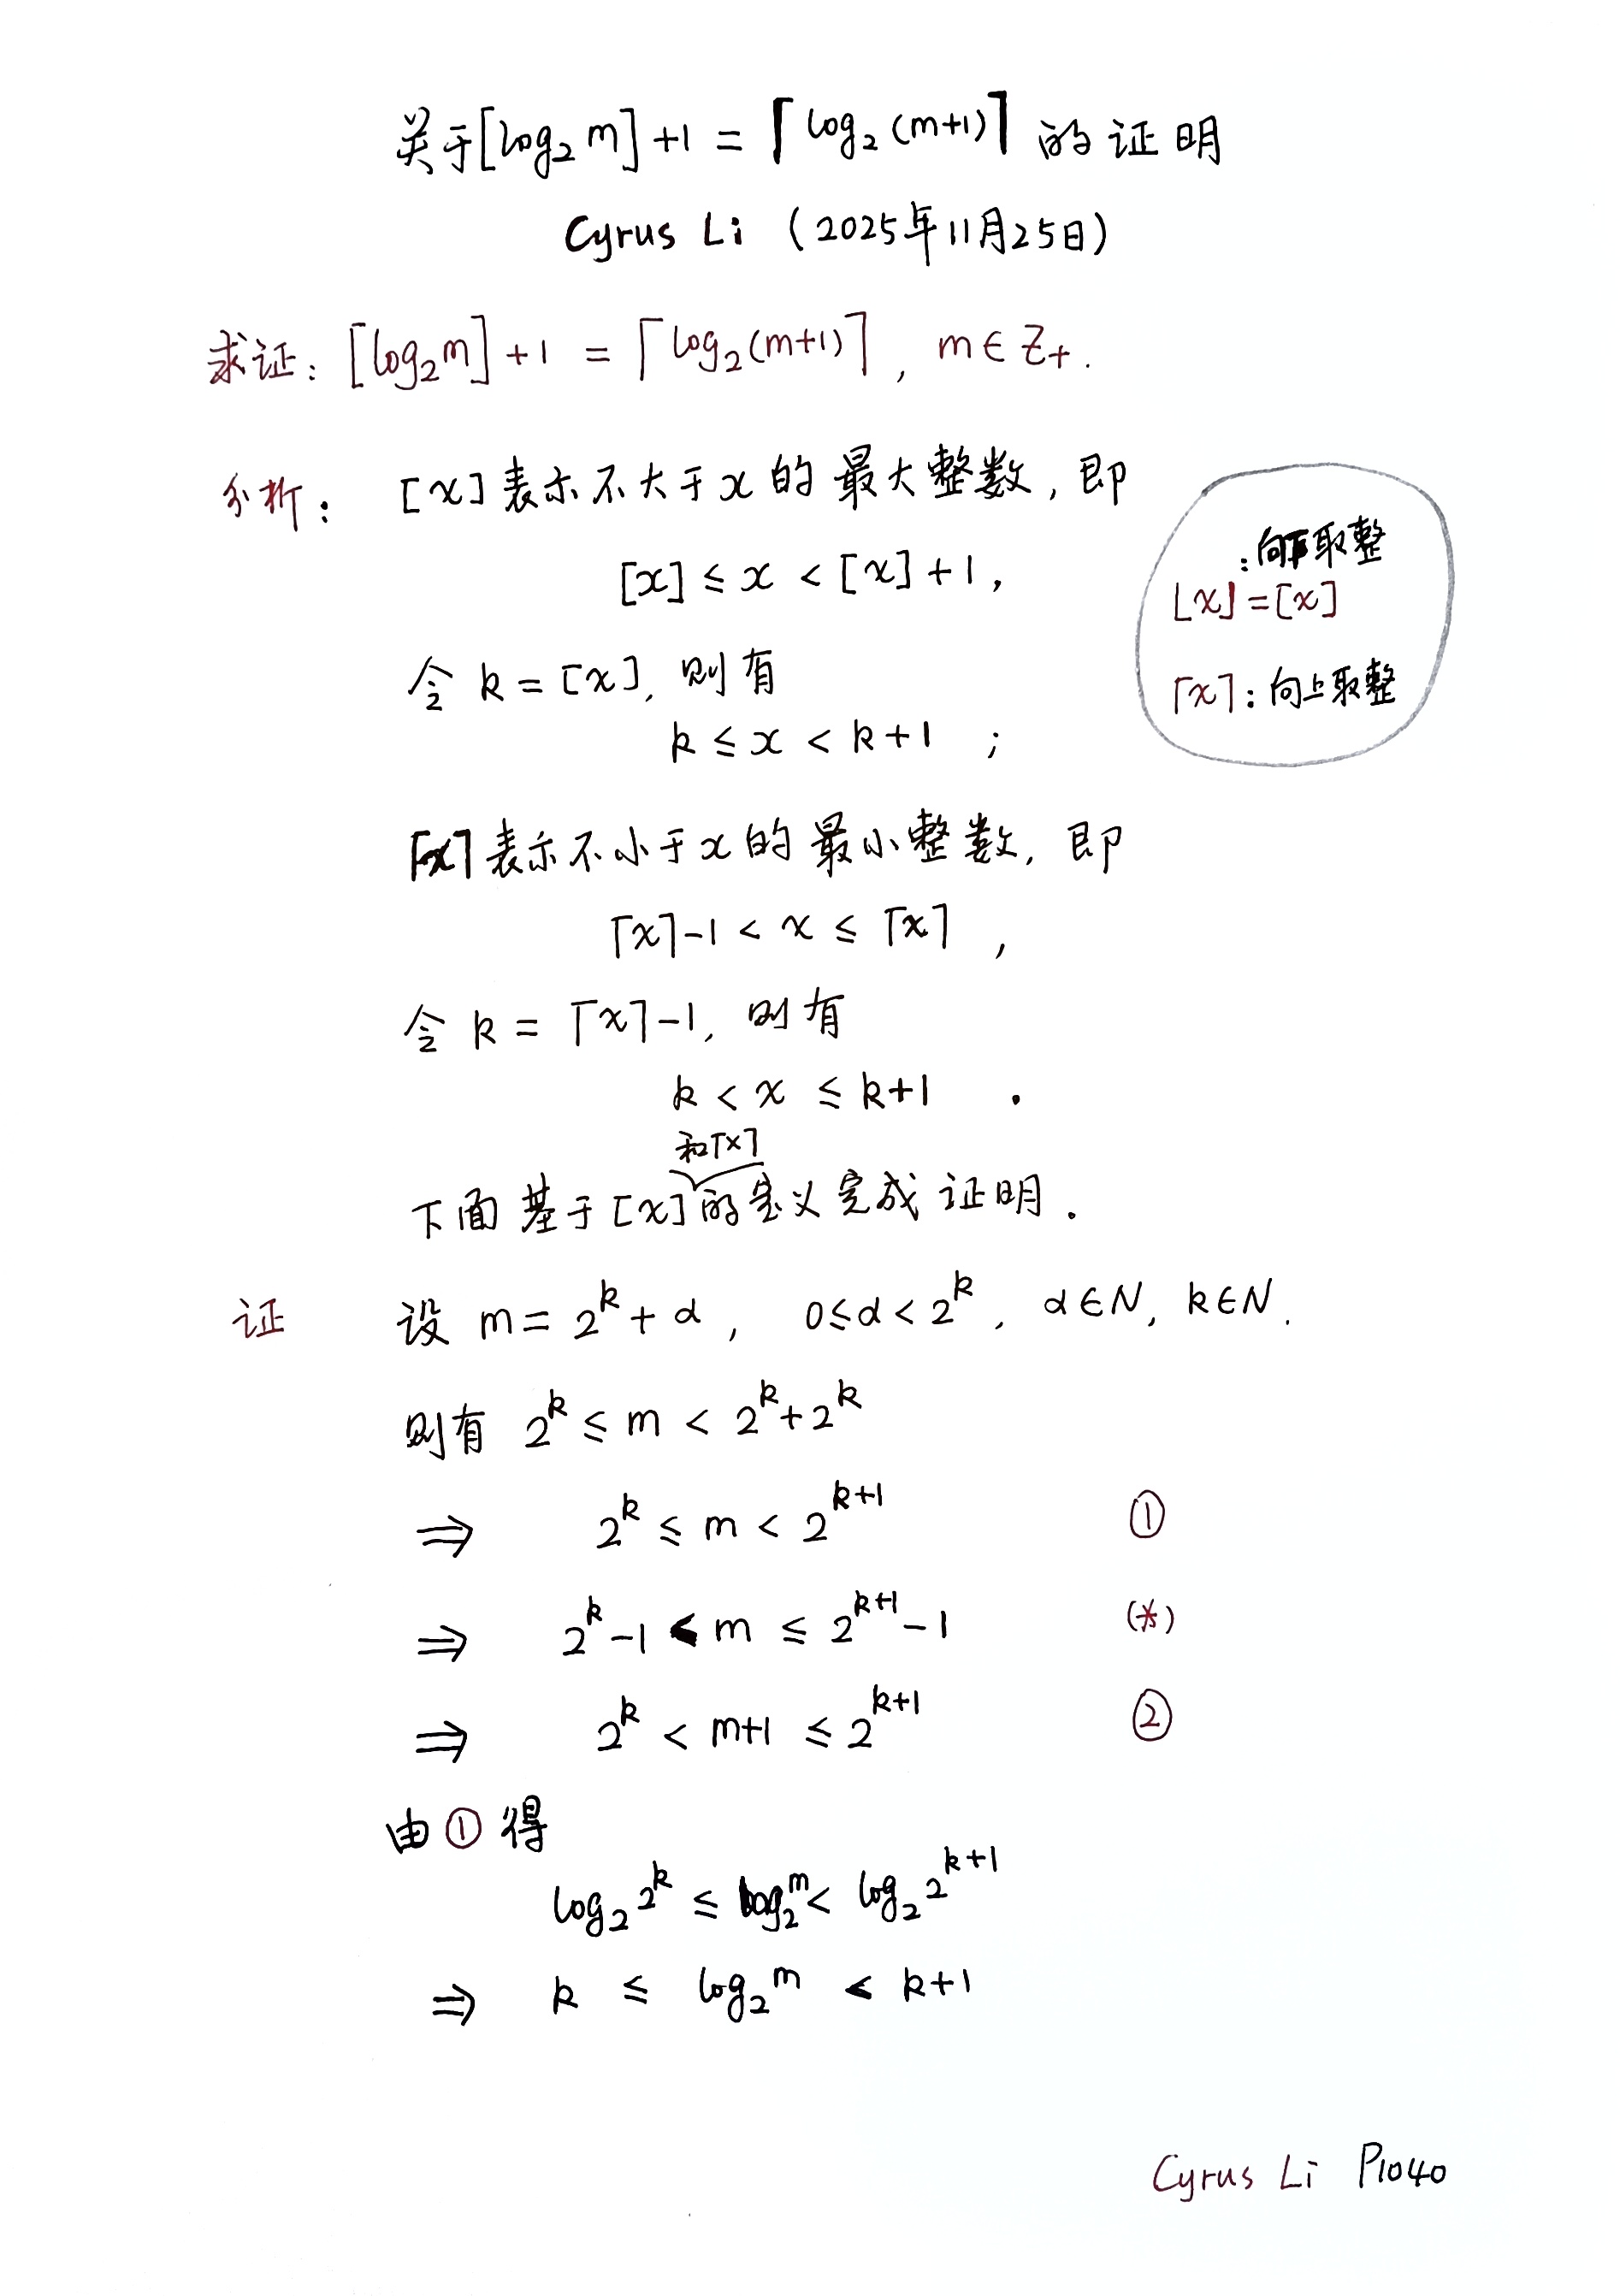 关于[log₂ m]+1 = ⌈log₂(m+1)⌉ 的证明
Cyrus Li (2025年11月25日)
求证: [log₂m]+1 = ⌈log₂(m+1)⌉, m∈Z₊.
分析: [x]表示不大于x的最大整数, 即
[x] ≤ x < [x]+1,
令 k = [x], 则有
k ≤ x < k+1 ;
:向下取整
⌊x⌋=[x]
⌈x⌉:向上取整
⌈x⌉表示不小于x的最小整数, 即
⌈x⌉-1 < x ≤ ⌈x⌉ ,
令 k = ⌈x⌉-1, 则有
k < x ≤ k+1 .
和⌈x⌉
下面基于[x]的定义完成证明.
证 设 m = 2^k + α, 0≤α<2^k, α∈N, k∈N.
则有 2^k ≤ m < 2^k+2^k
⇒ 2^k ≤ m < 2^{k+1} ①
⇒ 2^k -1 < m ≤ 2^{k+1} -1 (*)
⇒ 2^k < m+1 ≤ 2^{k+1} ②
由①得
log₂ 2^k ≤ log₂ m < log₂ 2^{k+1}
⇒ k ≤ log₂ m < k+1
Cyrus Li P1040